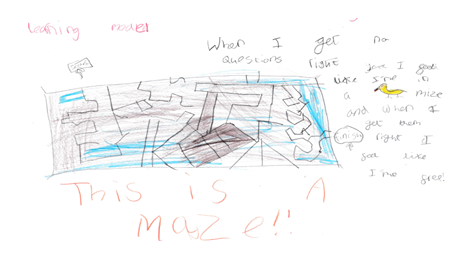 Learning model
When I get no
questions right
just I feel
like I'me in
a maze
and when I
get them
right I
feel like
I'me free!
Finish
This is A
maze!!